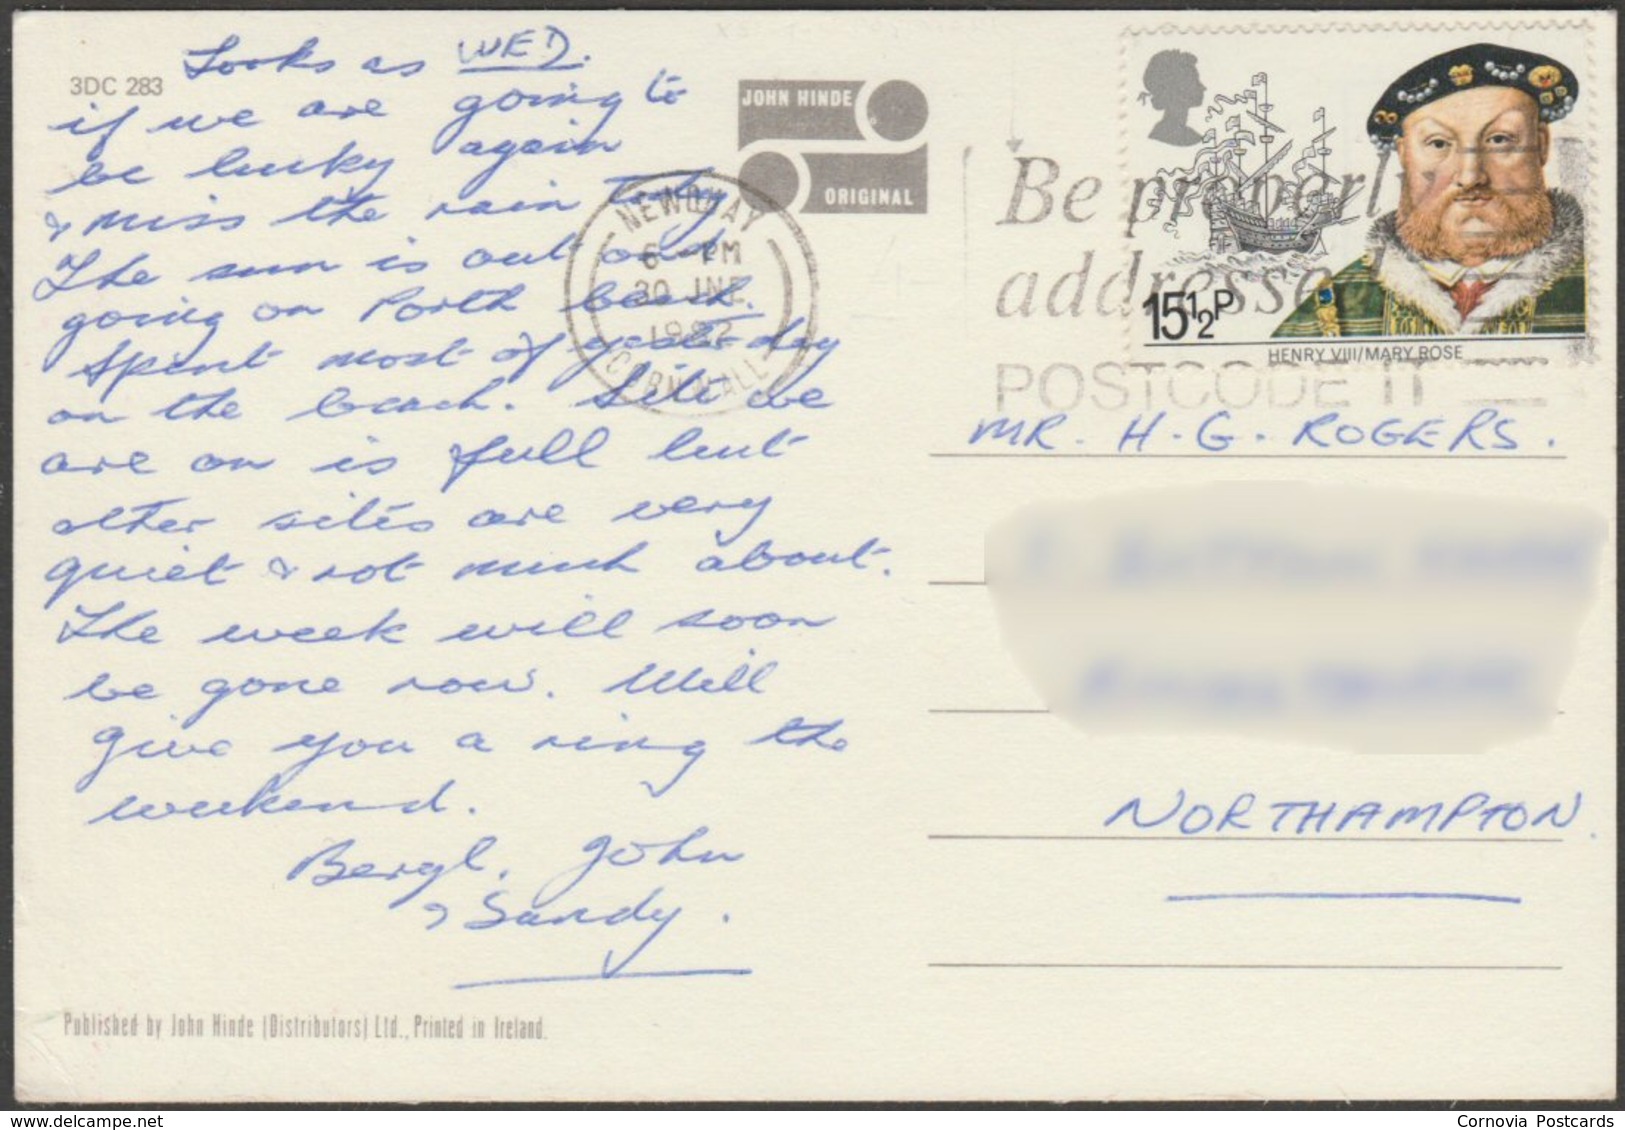 WED.
Looks as
if we are going to
be lucky again
& miss the rain today
The sun is out and
going on Porth beach.
Spent most of yesterday
on the beach. Site we
are on is full but
other sites are very
quiet & not much about.
The week will soon
be gone now. Will
give you a ring the
weekend.
Beryl, John
& Sandy.
3DC 283
JOHN HINDE
ORIGINAL
NEWQUAY
6 - PM
30 JNE
1982
CORNWALL
Be properly
addressed
POSTCODE IT
15½P
HENRY VIII/MARY ROSE
MR. H. G. ROGERS.
NORTHAMPTON.
Published by John Hinde (Distributors) Ltd., Printed in Ireland.
© Cornovia Postcards